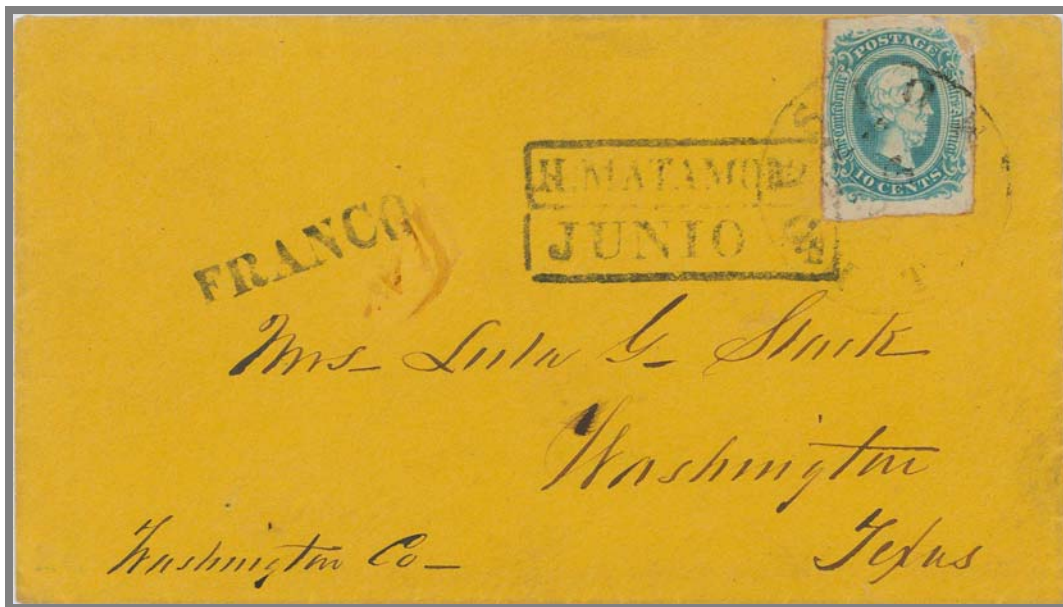 POSTAGE
The Confederate States of America
10 CENTS
H. MATAMOR
JUNIO
FRANCO
Mrs Lula G. Stark
Washington
Texas
Washington Co